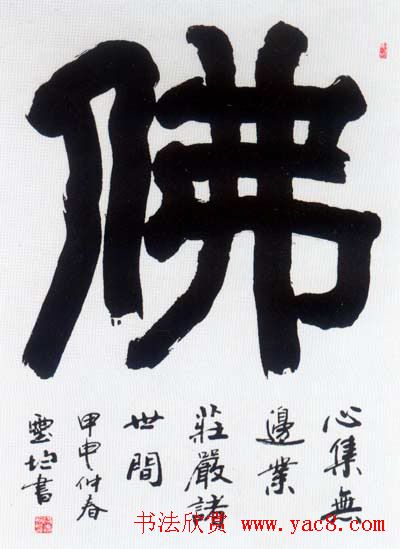 佛
心集無
邊業
莊嚴諸
世間
甲申仲春
均書
书法欣赏 www.yac8.com